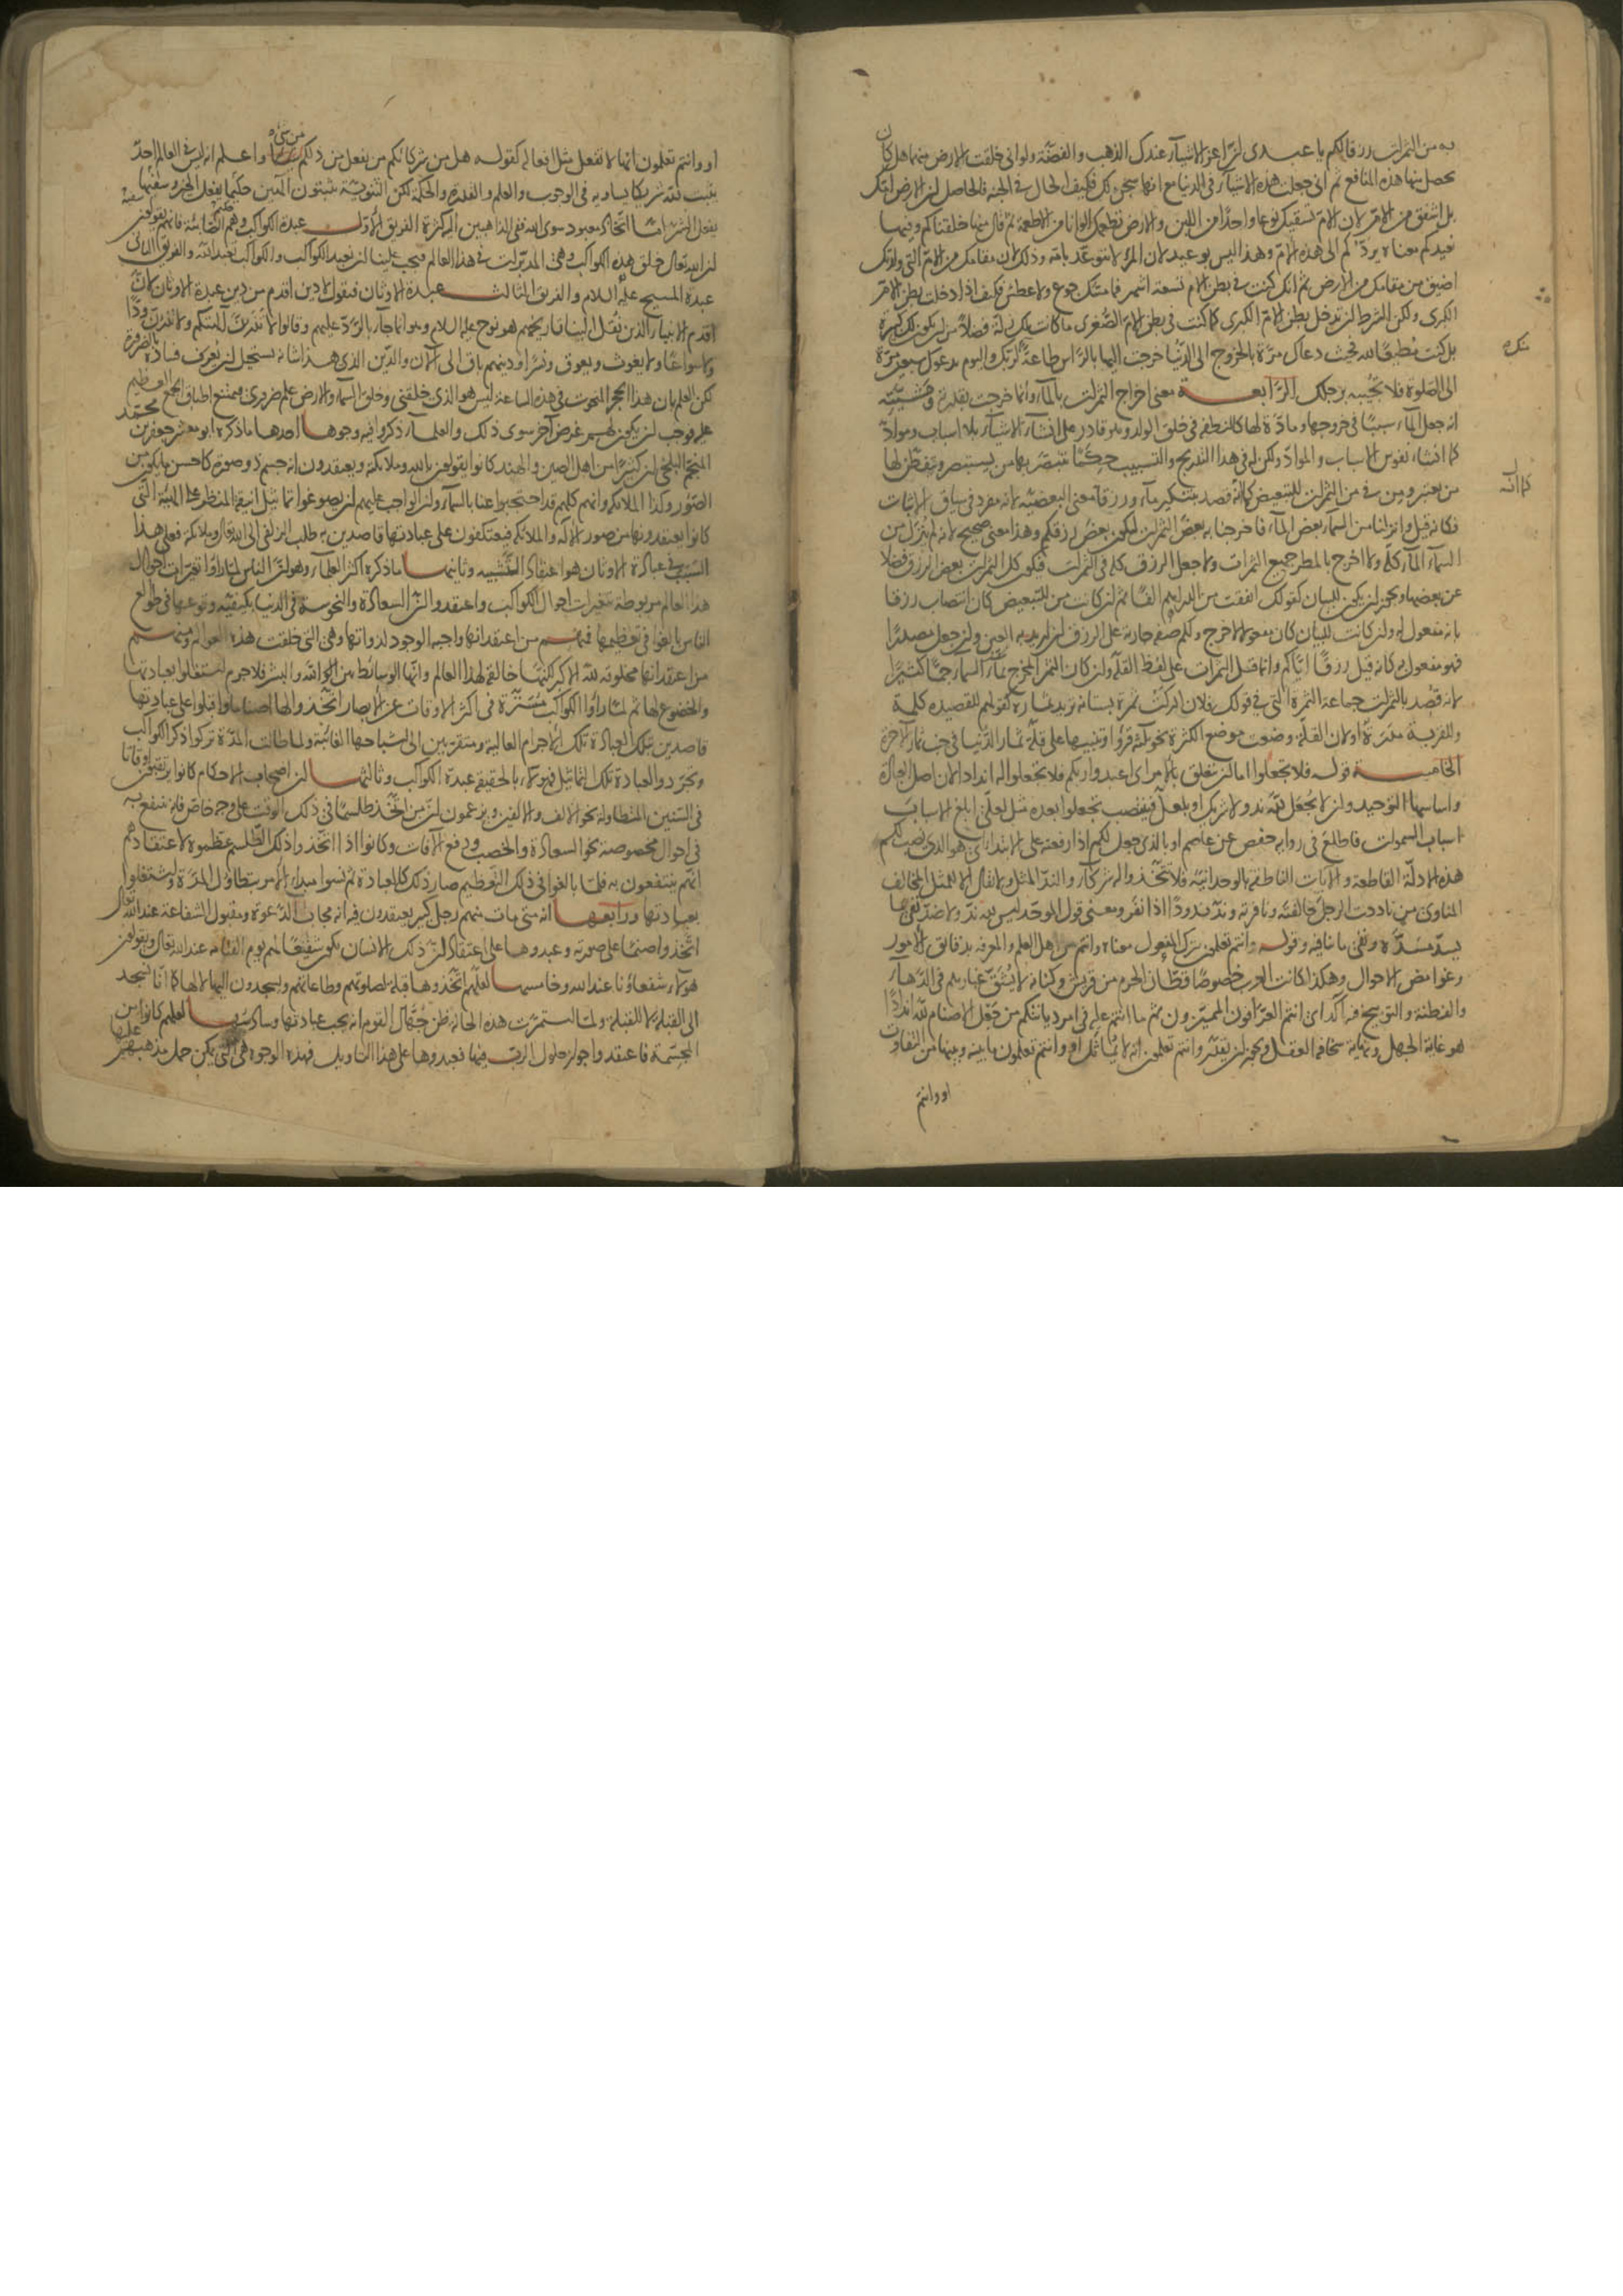 به من الثمرات رزقا لكم يا عبدى ان اعز الاشياء عندك الذهب والفضة ولو انى خلقت الارض منهما هل كان
يحصل منها هذه المنافع ثم انى جعلت هذه الاشياء فى الدنيا مع انها سجن لك فكيف الحال فى الجنة فالحاصل ان الارض امك
بل اشفق من الام لان الام تسقيك نوعا واحدا من اللبن والارض تطعمك الوانا من الاطعمة ثم قال منها خلقناكم وفيها
نعيدكم معناه نردكم الى هذه الام وهذا ليس بوعيد لان المرء لا يتوعد بامه وذلك لان مقامك من الام التى ولدتك
اضيق من مقامك من الارض ثم انك كنت فى بطن الام تسعة اشهر فما مسك جوع ولا عطش فكيف اذا دخلت بطن الام
الكبرى ولكن الشرط ان تدخل بطن الام الكبرى كما كنت فى بطن الام الصغرى ما كانت لك زلة فضلا من ان يكون لك كبيرة
بل كنت مطيعا لله فحيث دعاك مرة بالخروج الى الدنيا خرجت اليها بالراس طاعة لربك واليوم يدعوك سبعين مرة
الى الصلوة فلا تجيبه برجلك الرابعة معنى اخراج الثمرات بالماء وانما خرجت بقدرته ومشيته
انه جعل الماء سببا فى خروجها ومادة لها كالنطفة فى خلق الولد وهو قادر على انشاء الاشياء بلا اسباب ومواد
كما انشاء نفوس الاسباب والمواد ولكن له فى هذا التدريج والتسبيب حكما يتبصر بها من يستبصر ويتفطن لها
من يعتبر ومن فى من الثمرات للتبعيض كما انه قصد بتنكير ماء ورزقا معنى البعضية لانه مفرد فى سياق الاثبات
فكانه قيل وانزلنا من السماء بعض الماء فاخرجنا به بعض الثمرات ليكون بعض رزقكم وهذا معنى صحيح لانه لم ينزل من
السماء الماء كله ولا اخرج بالمطر جميع الثمرات ولا جعل الرزق كله فى الثمرات فيكون كل الثمرات بعض الرزق فضلا
عن بعضها ويجوز ان يكون للبيان كقولك انفقت من الدراهم الفا ثم ان كانت من للتبعيض كان انتصاب رزقا
بانه مفعول له وان كانت للبيان كان مفعولا لاخرج ولكم صفة جارية على الرزق ان اريد به العين وان جعل مصدرا
فهو مفعول به كانه قيل رزقا اياكم وانما قيل الثمرات على لفظ القلة وان كان الثمر المخرج بماء السماء جما كثيرا
لانه قصد بالثمرات جماعة الثمرة التى فى قولك فلان ادركت ثمرة بستانه تريد ثماره كقولهم للقصيدة كلمة
وللقرية مدرة او لان القلة وضعت موضع الكثرة نحو ثلثة قروء او تنبيها على قلة ثمار الدنيا فى جنب ثمار الاخرة
الخامسة قوله فلا تجعلوا اما ان تتعلق بالامر اى اعبدوا ربكم فلا تجعلوا له اندادا لان اصل العبادة
واساسها التوحيد وان لا يجعل لله ند ولا شريك او بلعل فينصب تجعلوا بعده مثل لعلى ابلغ الاسباب
اسباب السموات فاطلع فى رواية حفص عن عاصم او بالذى جعل لكم اذا رفعته على الابتداء اى هو الذى نصب لكم
هذه الادلة القاطعة والايات الناطقة بالوحدانية فلا تتخذوا له شركاء والند المثل ولا يقال الا للمثل المخالف
المناوى من ناددت الرجل خالفته ونافرته وند ندودا اذا نفر ومعنى قول الموحد ليس لله ند ولا ضد نفى ما
يسد مسده ونفى ما ينافيه وقوله وانتم تعلمون بترك المفعول معناه وانتم من اهل العلم والمعرفة بدقائق الامور
وغوامض الاحوال وهكذا كانت العرب خصوصا قطان الحرم من قريش وكنانة لا يشق غبارهم فى الدهاء
والفطنة والتوبيخ فيه اكد اى انتم العرافون المميزون ثم ما انتم عليه فى امر ديانتكم من جعل الاصنام لله اندادا
هو غاية الجهل ونهاية سخافة العقل ويجوز ان يقدر وانتم تعلمون انه لا يماثل او وانتم تعلمون ما بينه وبينها من التفاوت
او وانتم
او وانتم تعلمون انها لا تفعل مثل افعاله كقوله هل من شركائكم من يفعل من ذلكم من شىء واعلم انه ليس فى العالم احد
يثبت لله شريكا يساويه فى الوجوب والعلم والقدرة والحكمة لكن الثنوية يثبتون الهين حكيما يفعل الخير وسفيها
يفعل الشر اما اتخاذ معبود سوى الله ففى الذاهبين اليه كثرة الفريق الاول عبدة الكواكب وهم الصابئة فانهم يقولون
ان الله تعالى خلق هذه الكواكب وهى المدبرات فى هذا العالم فيجب علينا ان نعبد الكواكب والكواكب تعبد الله والفريق الثانى
عبدة المسيح عليه السلام والفريق الثالث عبدة الاوثان فنقول لا دين اقدم من دين عبدة الاوثان لان
اقدم الانبياء الذين نقل الينا تاريخهم هو نوح عليه السلام وهو انما جاء بالرد عليهم وقالوا لا تذرن الهتكم ولا تذرن ودا
ولا سواعا ولا يغوث ويعوق ونسرا ودينهم باق الى الان والدين الذى هذا شانه يستحيل ان يعرف فساده بالضرورة
لكن العلم بان هذا الحجر المنحوت فى هذه الساعة ليس هو الذى خلقنى وخلق السماء والارض علم ضرورى فيمتنع اطباق الجمع العظيم
عليه فوجب ان يكون لهم غرض اخر سوى ذلك والعلماء ذكروا فيه وجوها احدها ما ذكره ابو معشر جعفر بن محمد
المنجم البلخى ان كثيرا من اهل الصين والهند كانوا يقولون بالله وملائكته ويعتقدون انه جسم ذو صورة كاحسن ما يكون من
الصور وكذا الملائكة وانهم كلهم قد احتجبوا عنا بالسماء وان الواجب عليهم ان يصوغوا تماثيل انيقة المنظر على الهيئة التى
كانوا يعتقدونها من صور الاله والملائكة فيعتكفون على عبادتها قاصدين به طلب الزلفى الى الله تعالى وملائكته فعلى هذا
السبب فى عبادة الاوثان هو اعتقاد التشبيه وثانيها ما ذكره اكثر العلماء وهو ان الناس لما راوا تغيرات احوال
هذا العالم مربوطة بتغيرات احوال الكواكب واعتقدوا ان السعادة والنحوسة فى الدنيا بكيفية وقوعها فى طوالع
الناس بالغوا فى تعظيمها فمنهم من اعتقد انها واجبة الوجود لذواتها وهى التى خلقت هذه العوالم ومنهم
من اعتقد انها مخلوقة لله الاكبر لكنها خالقة لهذا العالم وانها الوسائط بين الله والبشر فلا جرم اشتغلوا بعبادتها
والخضوع لها ثم لما راوا الكواكب مستترة فى اكثر الاوقات عن الابصار اتخذوا لها اصناما واقبلوا على عبادتها
قاصدين بتلك العبادة تلك الاجرام العالية ومتقربين الى اشباحها الغائبة ولما طالت المدة تركوا ذكر الكواكب
وتجردوا لعبادة تلك التماثيل فهؤلاء بالحقيقة عبدة الكواكب وثالثها ان اصحاب الاحكام كانوا يرتقبون اوقاتا
فى السنين المتطاولة نحو الالف والالفين ويزعمون ان من اتخذ طلسما فى ذلك الوقت على وجه خاص فانه ينتفع به
فى احوال مخصوصة نحو السعادة والخصب ودفع الافات وكانوا اذا اتخذوا ذلك الطلسم عظموه لاعتقادهم
انهم ينتفعون به فلما بالغوا فى ذلك التعظيم صار ذلك كالعبادة ثم نسوا مبداء الامر بتطاول المدة واشتغلوا
بعبادتها ورابعها انه متى مات منهم رجل كبير يعتقدون فيه انه مجاب الدعوة ومقبول الشفاعة عند الله تعالى
اتخذوا صنما على صورته وعبدوها على اعتقاد ان ذلك الانسان يكون شفيعا لهم يوم القيامة عند الله تعالى ويقولون
هؤلاء شفعاؤنا عند الله وخامسها لعلهم اتخذوها قبلة لصلوتهم وطاعاتهم ويسجدون اليها لا لها كما انا نسجد
الى القبلة لا للقبلة ولما استمرت هذه الحالة ظن جهال القوم انه يجب عبادتها وسادسها لعلهم كانوا من
المجسمة فاعتقدوا جواز حلول الرب فيها فعبدوها على هذا التاويل فهذه الوجوه هى التى يمكن حمل مذهبهم عليها